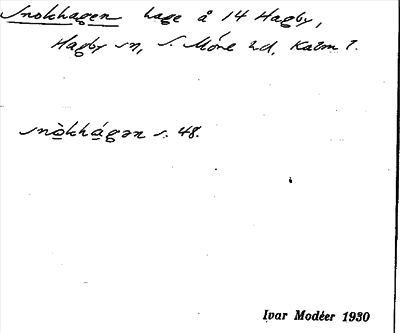 Snokhagen hage å 14 Hagby,
Hagby sn, S. Möre hd, Kalm l.
snò̲khá̲gən s. 48.
Ivar Modéer 1930